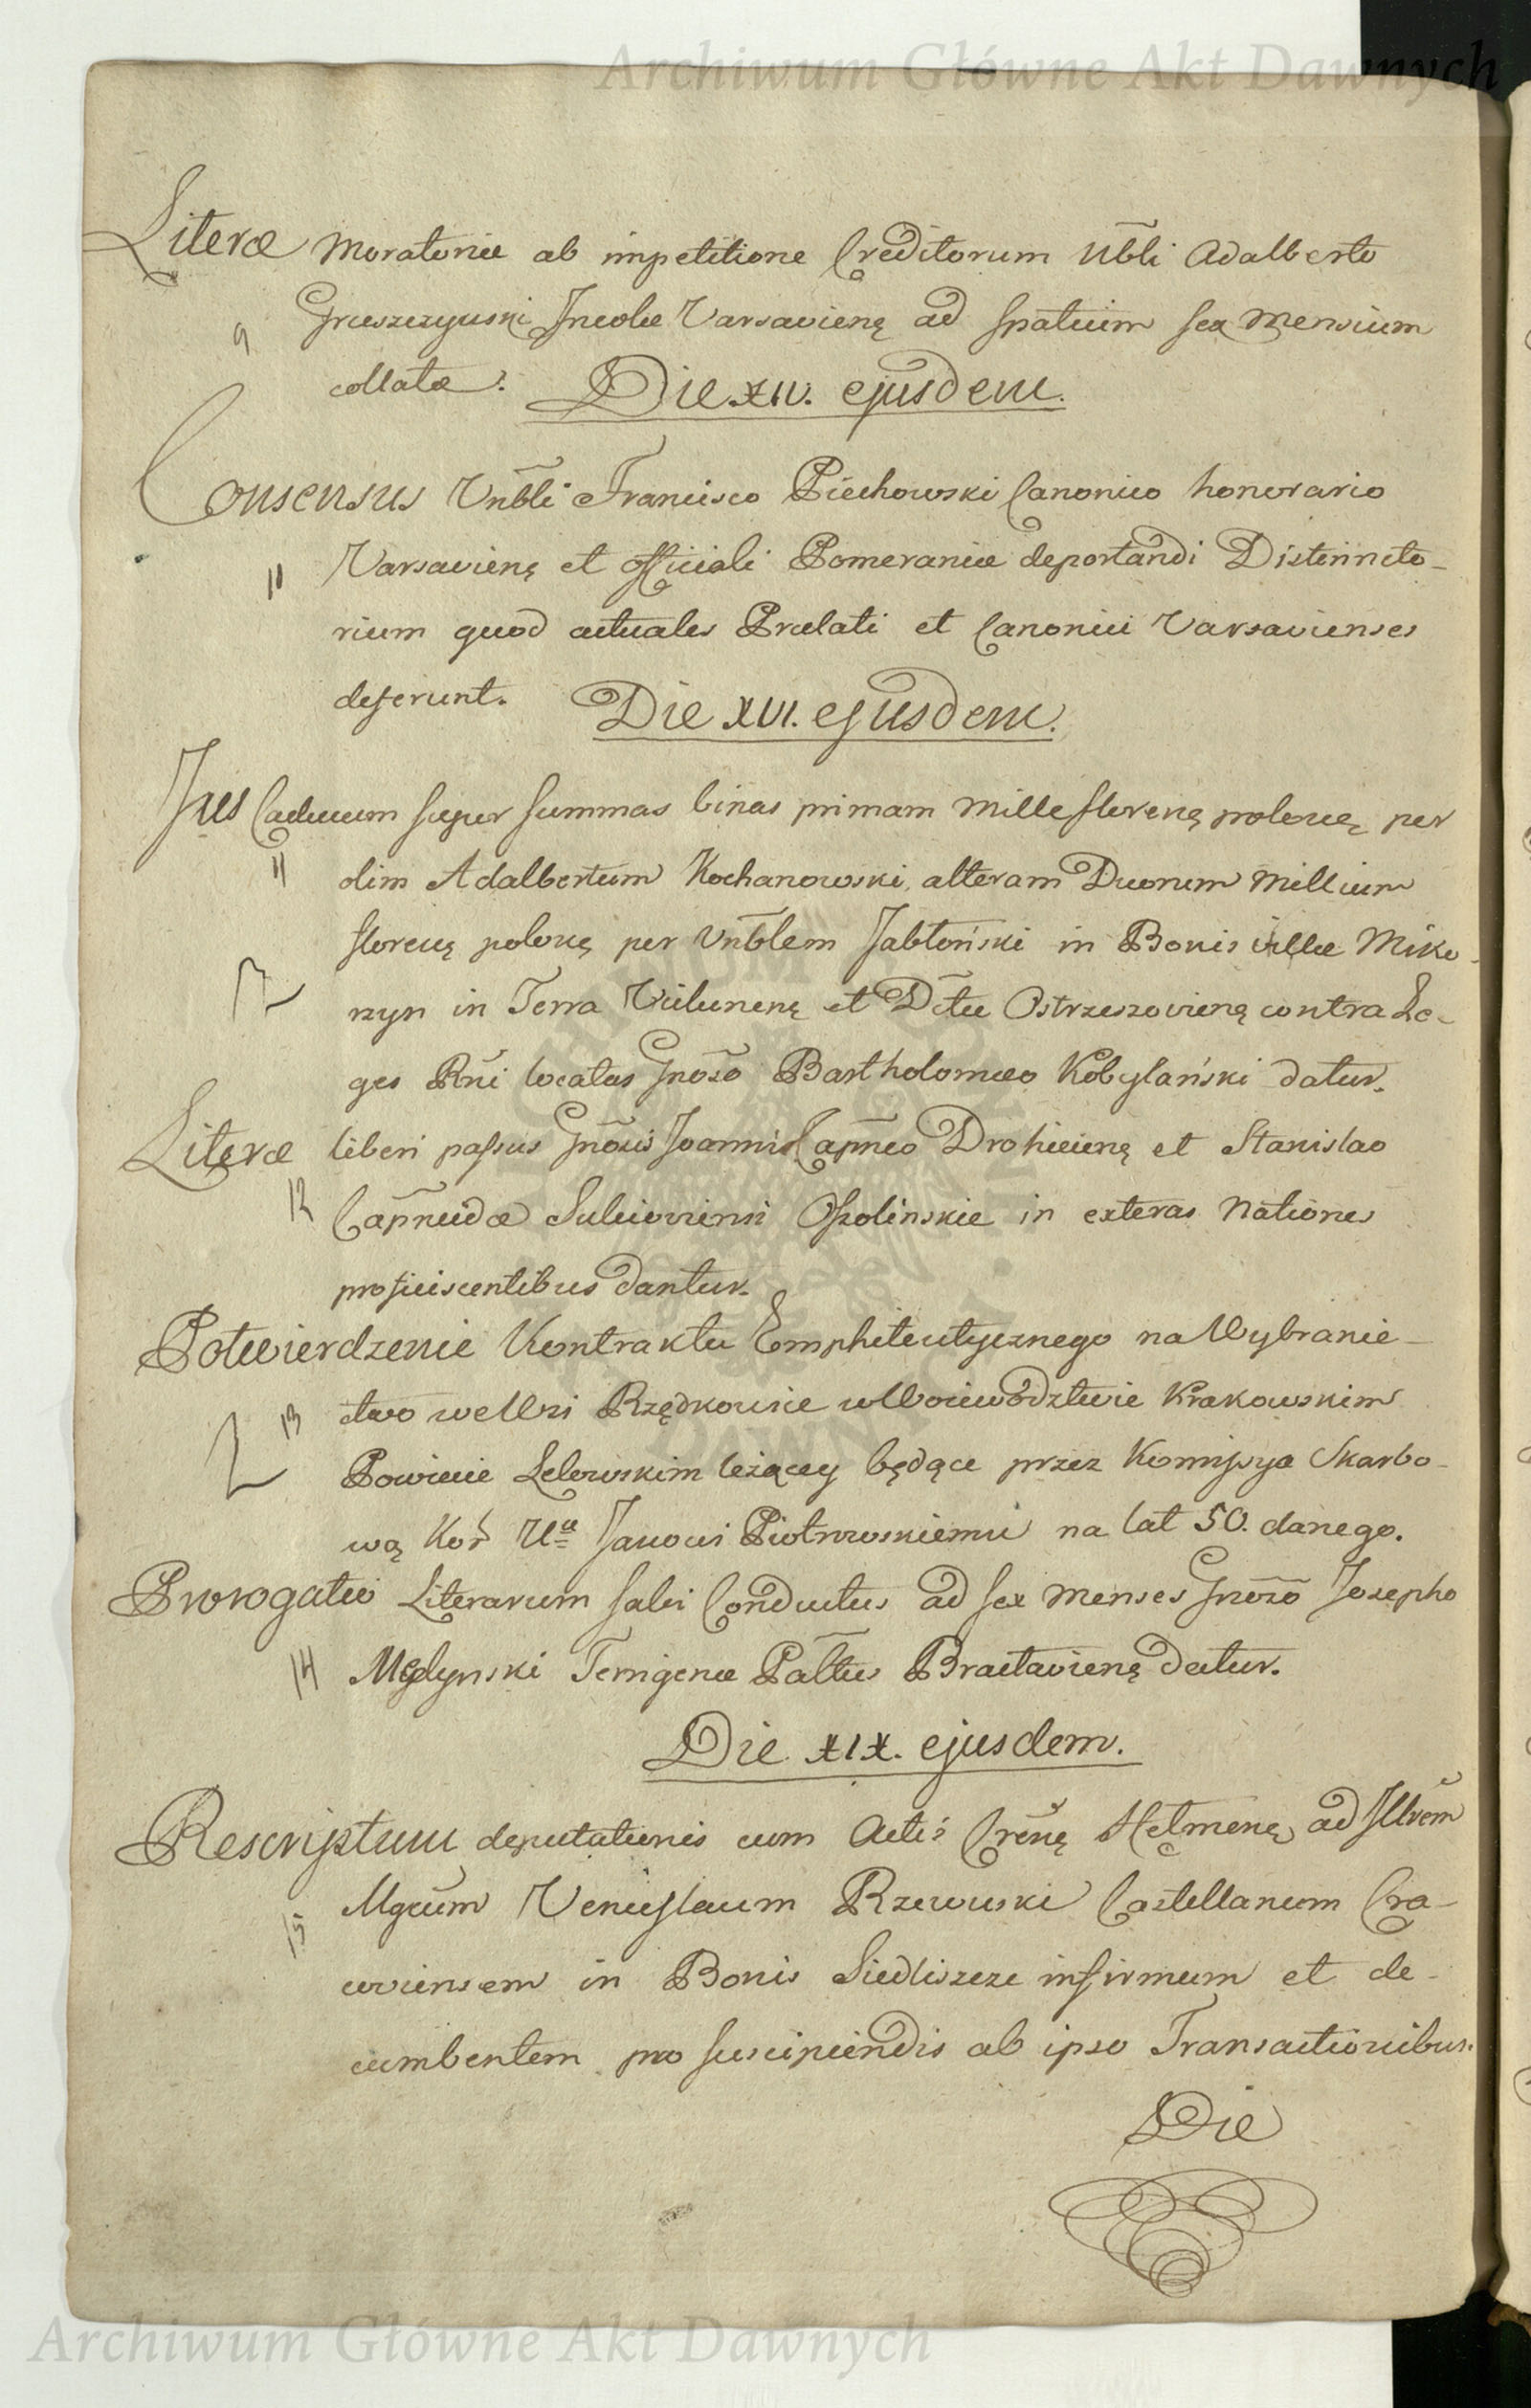 Archiwum Główne Akt Dawnych
Literæ Moratoriæ ab impetitione Creditorum Nbli Adalberto
9 Grzeszczynski Incolæ Varsavienę ad spatium sex Mensium
collatæ. Die XIV. ejusdem.
Consensus Vnbli Francisco Piechowski Canonico honorario
10 Varsavienę et officiali Pomeraniæ deportandi Distincto-
rium quod actuales Prælati et Canonici Varsavienses
deferunt. Die XVI. ejusdem.
Jus Caducum super summas binas primam mille florenę polonę per
11 olim Adalbertum Kochanowski, alteram Duorum Millium
florenę polonę per Vnblem Jabłoński in Bonis villæ Miko-
rzyn in Terra Vielunenę et Dctu Ostrzeszovienę contra Le-
ges Rni locatas Gnoso Bartholomæo Kobylański datur.
Literæ liberi passus Gnosis Joanni Capneo Drohicienę et Stanislao
12 Capneidæ Sulcioviensi Ossolinskie in exteras Nationes
proficiscentibus dantur.
Potwierdzenie Kontraktu Emphiteutycznego na Wybranie-
13 ctwo we Wsi Rzędkowice w Woiewodztwie Krakowskim
Powiecie Lelowskim leżącey będące przez Kommissya Skarbo-
wą Kor Ur Janowi Piotrowskiemu na lat 50. danego.
Prorogatio Literarum salvi Conductus ad sex Menses Gnoso Josepho
14 Mędynski Terrigenæ Paltus Braclavienę datur.
Die XIX. ejusdem.
Rescriptum deputationis cum Actis Crenę Helmenę ad Illrem
15 Mgcum Venceslaum Rzewuski Castellanum Cra-
coviensem in Bonis Siedliszcze infirmum et de-
cumbentem pro suscipiendis ab ipso Transactionibus.
Die
Archiwum Główne Akt Dawnych